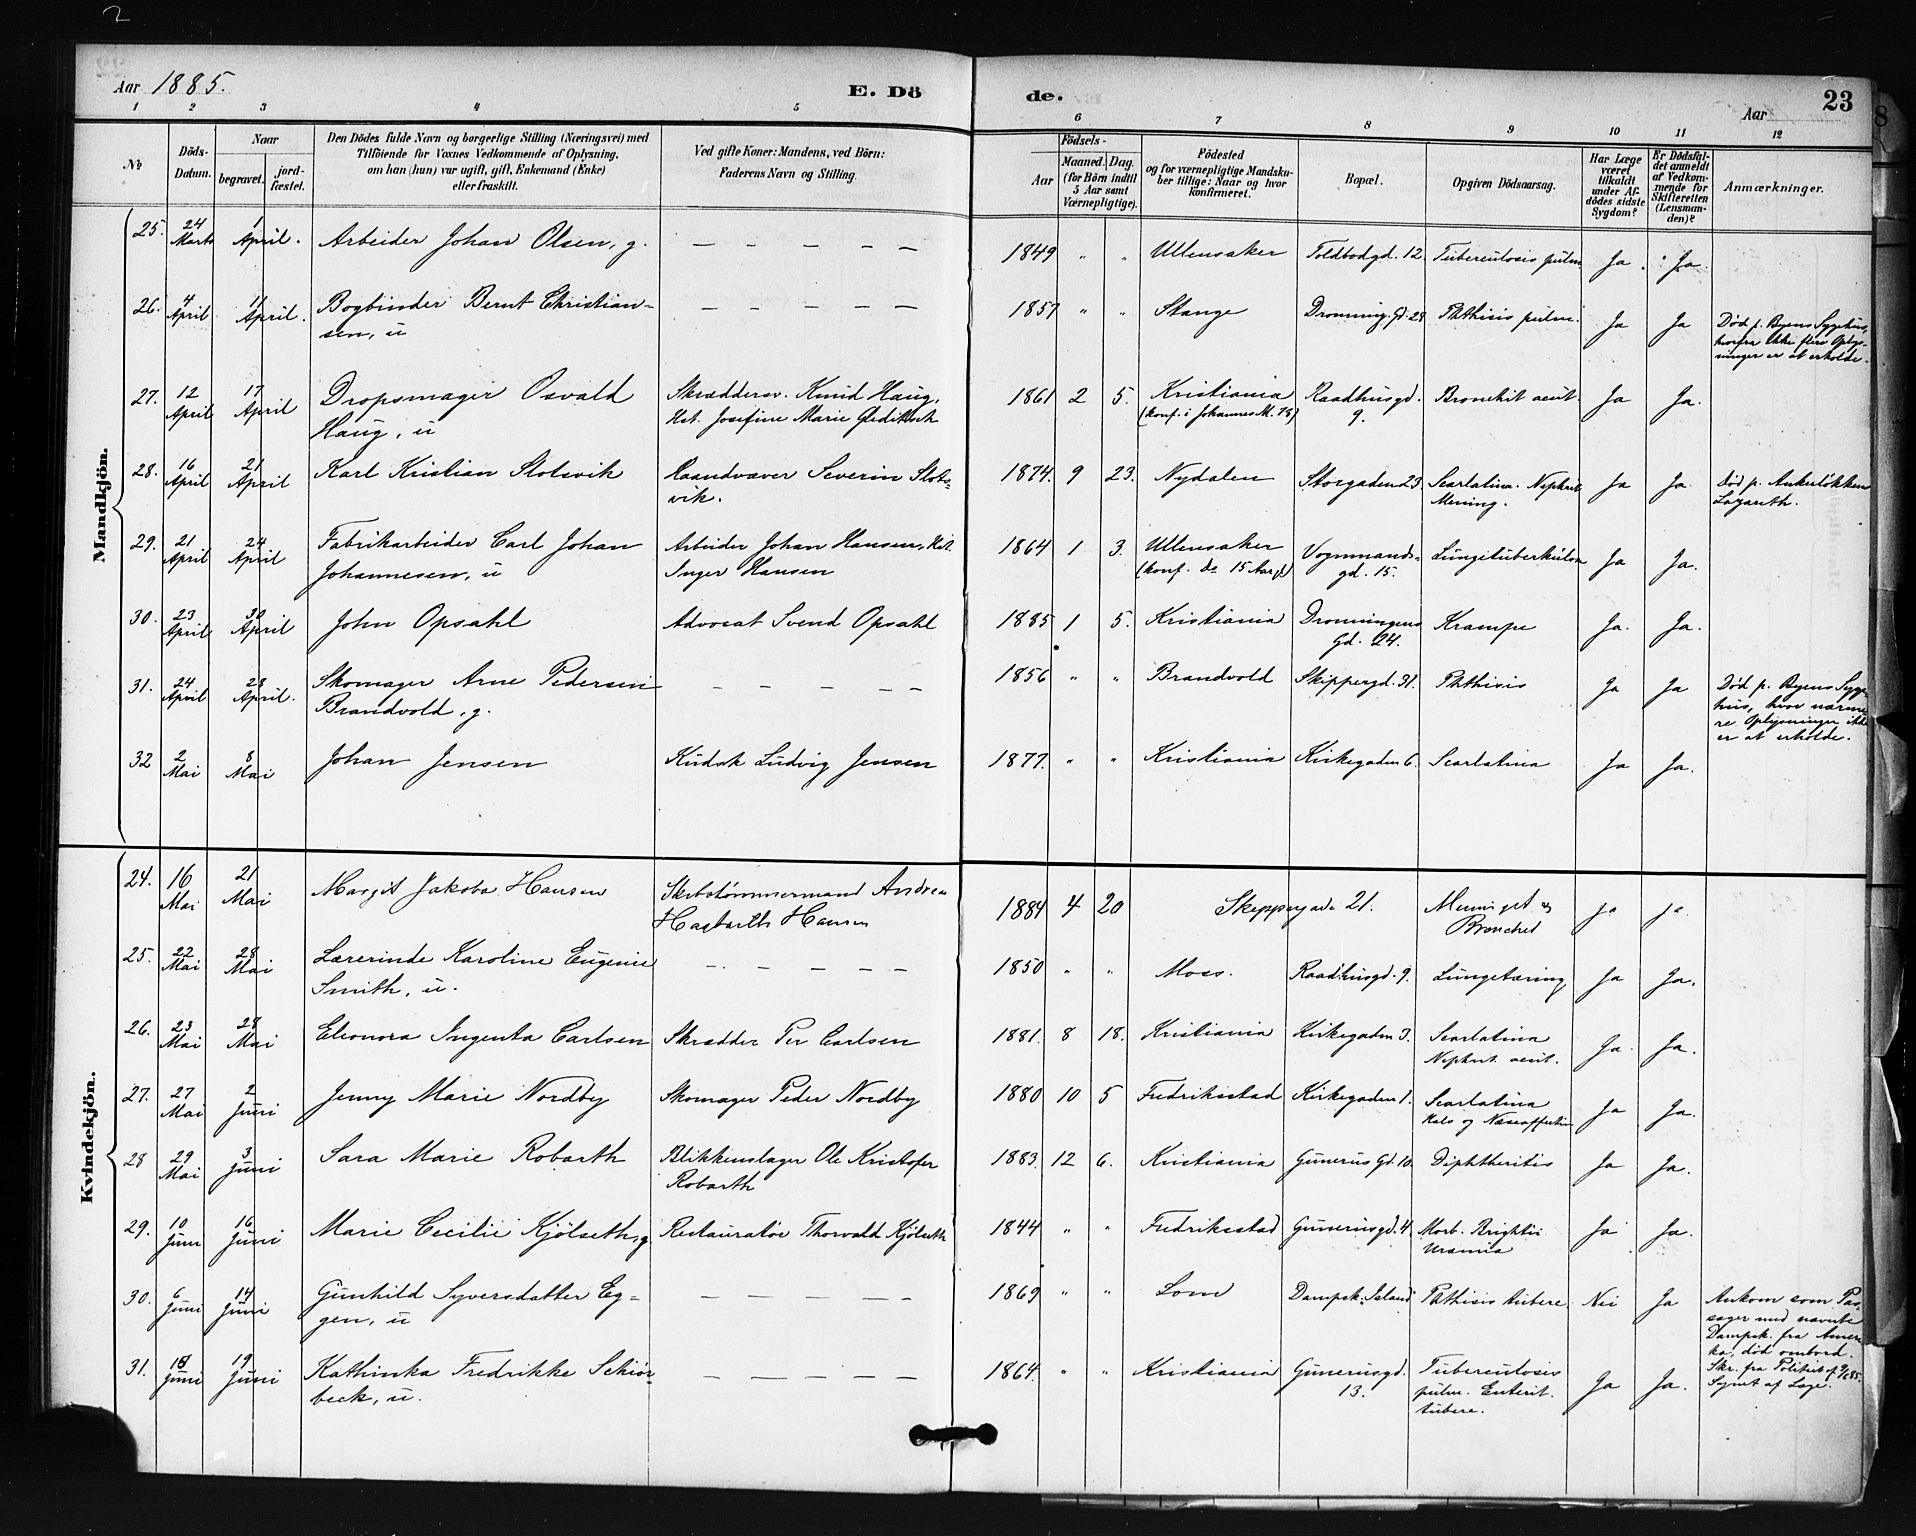 Aar 1885. E. Döde. Aar 23
1 2 3 4 5 6 7 8 9 10 11 12
No
Döds-Datum.
Naar begravet. jordfæstet.
Den Dödes fulde Navn og borgerlige Stilling (Næringsvei) med Tilföiende for Voxnes Vedkommende af Oplysning, om han (hun) var ugift, gift, Enkemand (Enke) eller fraskilt.
Ved gifte Koner: Mandens, ved Börn: Faderens Navn og Stilling.
Födsels-
Aar Maaned. Dag.
(for Börn indtil 5 Aar samt Værnepligtige).
Födested og for værnepligtige Mandskaber tillige: Naar og hvor konfirmeret.
Bopæl.
Opgiven Dödsaarsag.
Har Læge været tilkaldt under Afdödes sidste Sygdom?
Er Dödsfaldet anmeldt af Vedkommende for Skifteretten (Lensmanden)?
Anmærkninger.
Mandkjön.
25. 24 Marts 1 April. Arbeider Johan Olsen, g. — — — — — 1849 " " Ullensaker Toldbodgd. 12. Tuberculosis pulm Ja. Ja.
26. 4 April 11 April. Bogbinder Bernt Christiansen, u — — — — — 1857 " " Stange Dronning. Gd. 28 Phthisis pulm. Ja Ja Död p. Byens Sygehus, hvorfra ikke flere Oplysninger er at erholde.
27. 12 April 17 April Dropsmager Osvald Haug, u Skræddersv. Knud Haug, Hst. Josefine Marie Gleditsch 1861 2 5. Kristiania (konf. i Johannes M. 75) Raadhusgd. 9. Bronchit acut. Ja Ja.
28. 16 April 21 April Karl Kristian Slotsvik Haandvæver Severin Slotsvik. 1874. 9 23. Nydalen Storgaden 23. Scarlatina. Nephrit. Mening. Ja Ja. Död p. Ankerlökkens Lazareth.
29. 21 April 24 April Fabrikarbeider Carl Johan Johannesen, u Arbeider Johan Hansen, Hst. Inger Hansen 1864 1 3. Ullensaker (konf. do 15 Aar gl) Vognmandsgd. 15. Lungetuberkulose Ja Ja.
30. 23 April 30 April John Opsahl Advocat Svend Opsahl 1885 1 5. Kristiania Dronningens Gd. 24. Krampe Ja. Ja.
31. 24 April 28 April. Skomager Arne Pedersen Brandvold, g. — — — — — 1856 " " Brandvold Skippergd. 31. Phthisis Ja Ja Död p. Byens Sygehus, hvor nærmere Oplysninger ikke er at erholde.
32 2 Mai 8 Mai Johan Jensen Kudsk Ludvig Jensen 1877. " " Kristiania Kirkegaden 6. Scarlatina Ja Ja.
Kvindekjön.
24. 16 Mai 21 Mai Margit Jakoba Hansen Skibstømmermand Andreas Hagbarth Hansen 1884 4 20 Skippergade 21. Meninget & Bronchet Ja Ja.
25. 22 Mai 28 Mai Lærerinde Karoline Eugenie Smith, u. — — — — — 1850 " " Moss. Raadhusgd. 9. Lungetæring Ja Ja.
26. 23 Mai 28 Mai Eleonora Ingenta Carlsen Skrædder Per Carlsen 1881. 8 18. Kristiania Kirkegaden 3. Scarlatina Nephrit. acut. Ja. Ja.
27. 27 Mai 2 Juni Jenny Marie Nordby Skomager Peder Nordby 1880 10 5 Fredriksstad Kirkegaden 1. Scarlatina Hals og Næseaffection Ja Ja.
28 29 Mai 3 Juni Sara Marie Robarth Blikkenslager Ole Kristofer Robarth 1883. 12 6. Kristiania Gunerus Gd. 10. Diphtheritis Ja Ja.
29. 10 Juni 16 Juni Marie Cecilie Kjölseth, g Restauratør Thorvald Kjölseth 1844 " " Fredriksstad Gunerusgd. 4. Morb. Brightii Uræmia Ja Ja.
30. 6 Juni 14 Juni Gunhild Syversdatter Eggen, u — — — — — 1869 " " Lom Dampsk. "Island" Phthisis tubere Nei Ja Ankom som Passager med nævnte Dampsk. fra Amerika, död ombord. Skr. fra Politiet af 9/6 85. Synet af Læge.
31. 15 Juni 19 Juni Kathinka Fredrikke Schiörbeck, u. — — — — — 1864. " " Kristiania Gunerusgd. 13. Tuberculosis pulm. Enterit. tubere. Ja Ja.